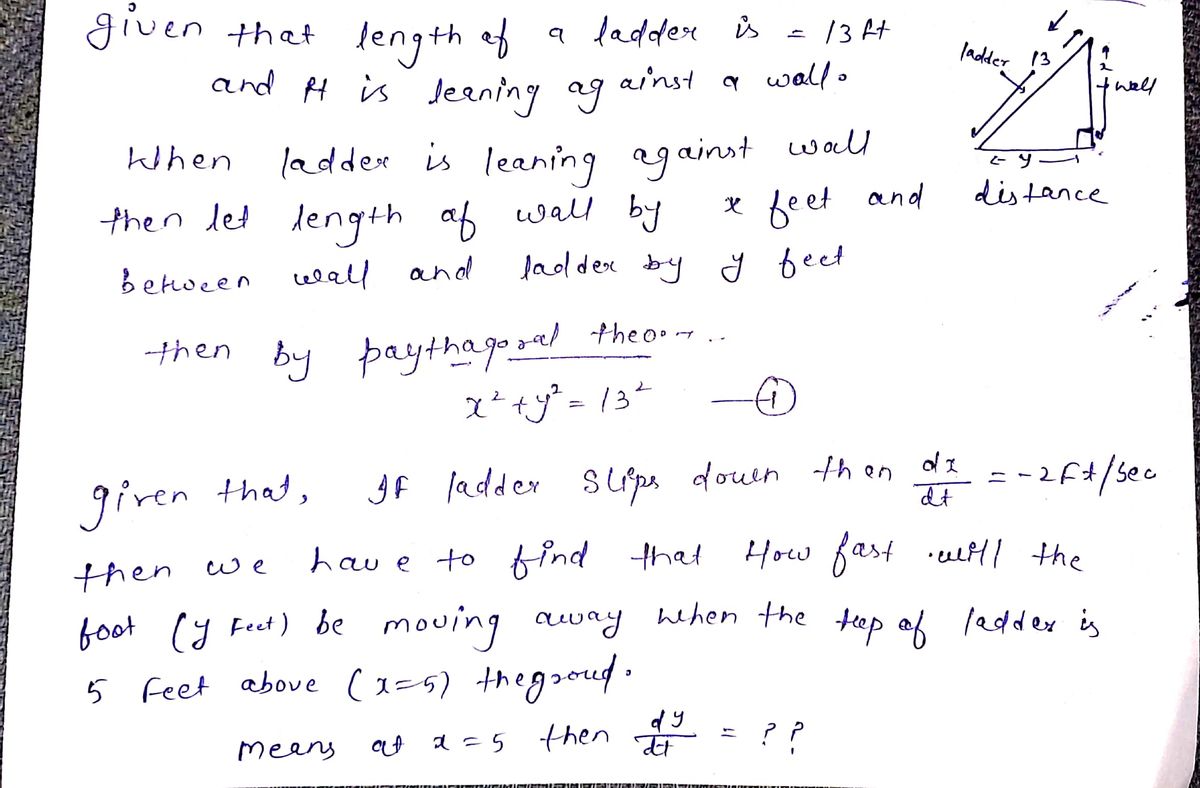 given that length of a ladder is = 13 ft
and it is leaning against a wall.
ladder 13
x
wall
y
When ladder is leaning against wall
then let length of wall by x feet and distance
between wall and ladder by y feet
then by paythagoral
x² + y² = 13² — (i)
given that, If ladder slips down then dx/dt = -2ft/sec
then we have to find that How fast will the
foot (y Feet) be moving away when the top of ladder is
5 Feet above (x=5) the groud.
means at x = 5 then dy/dt = ??